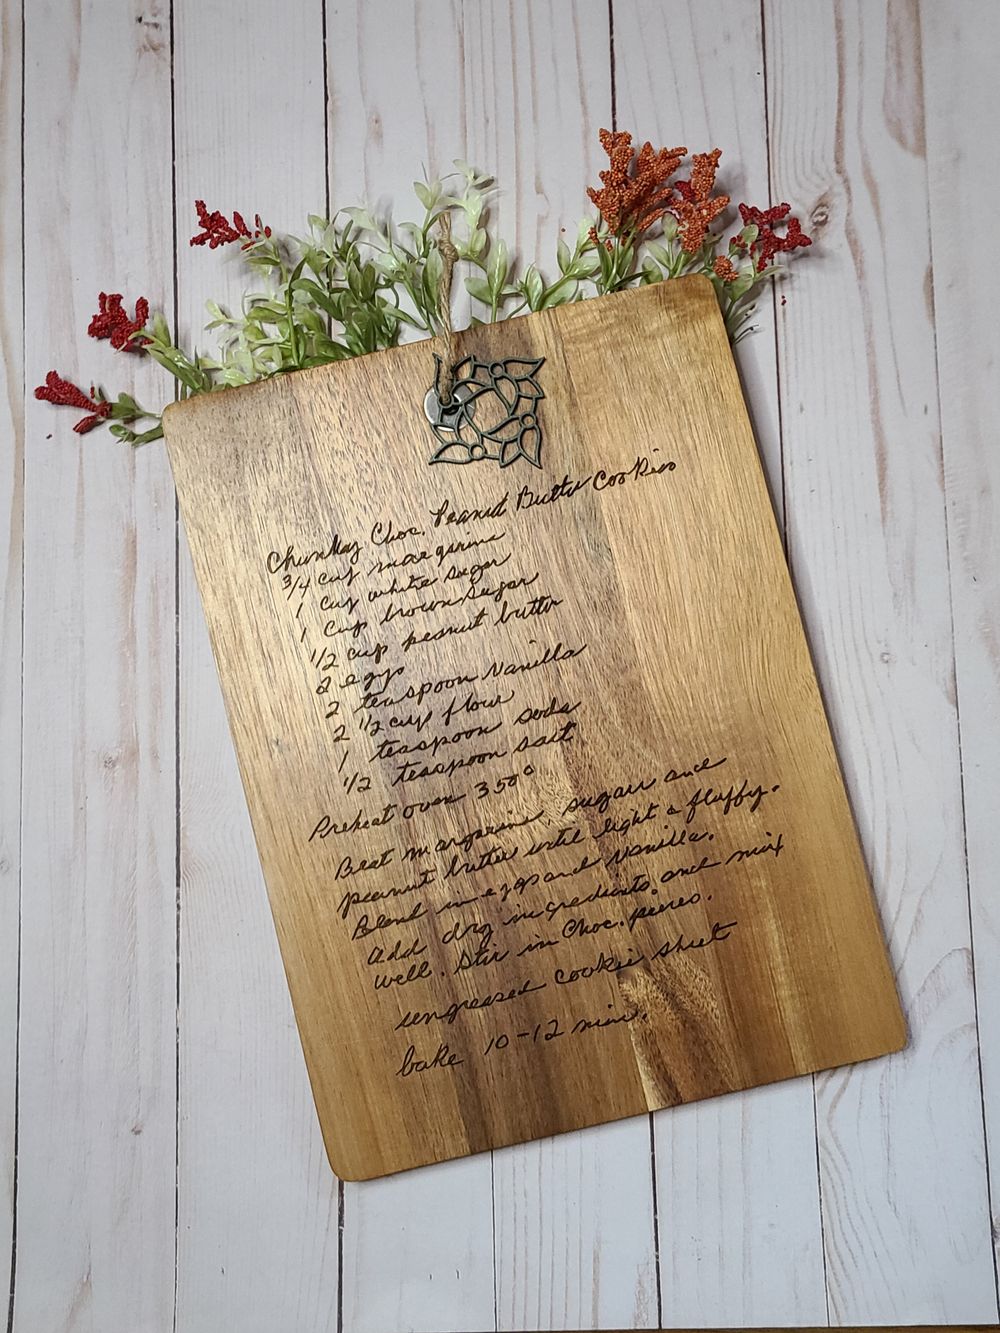 Chunky Choc. Peanut Butter Cookies
3/4 cup margarine
1 cup white sugar
1 cup brown sugar
1/2 cup peanut butter
2 eggs
2 teaspoon vanilla
2 1/2 cup flour
1 teaspoon soda
1/2 teaspoon salt
Preheat oven 350°
Beat margarine, sugars and
peanut butter until light & fluffy.
Blend in eggs and vanilla.
Add dry ingredients and mix
well. Stir in Choc. pieces.
ungreased cookie sheet
bake 10-12 min.